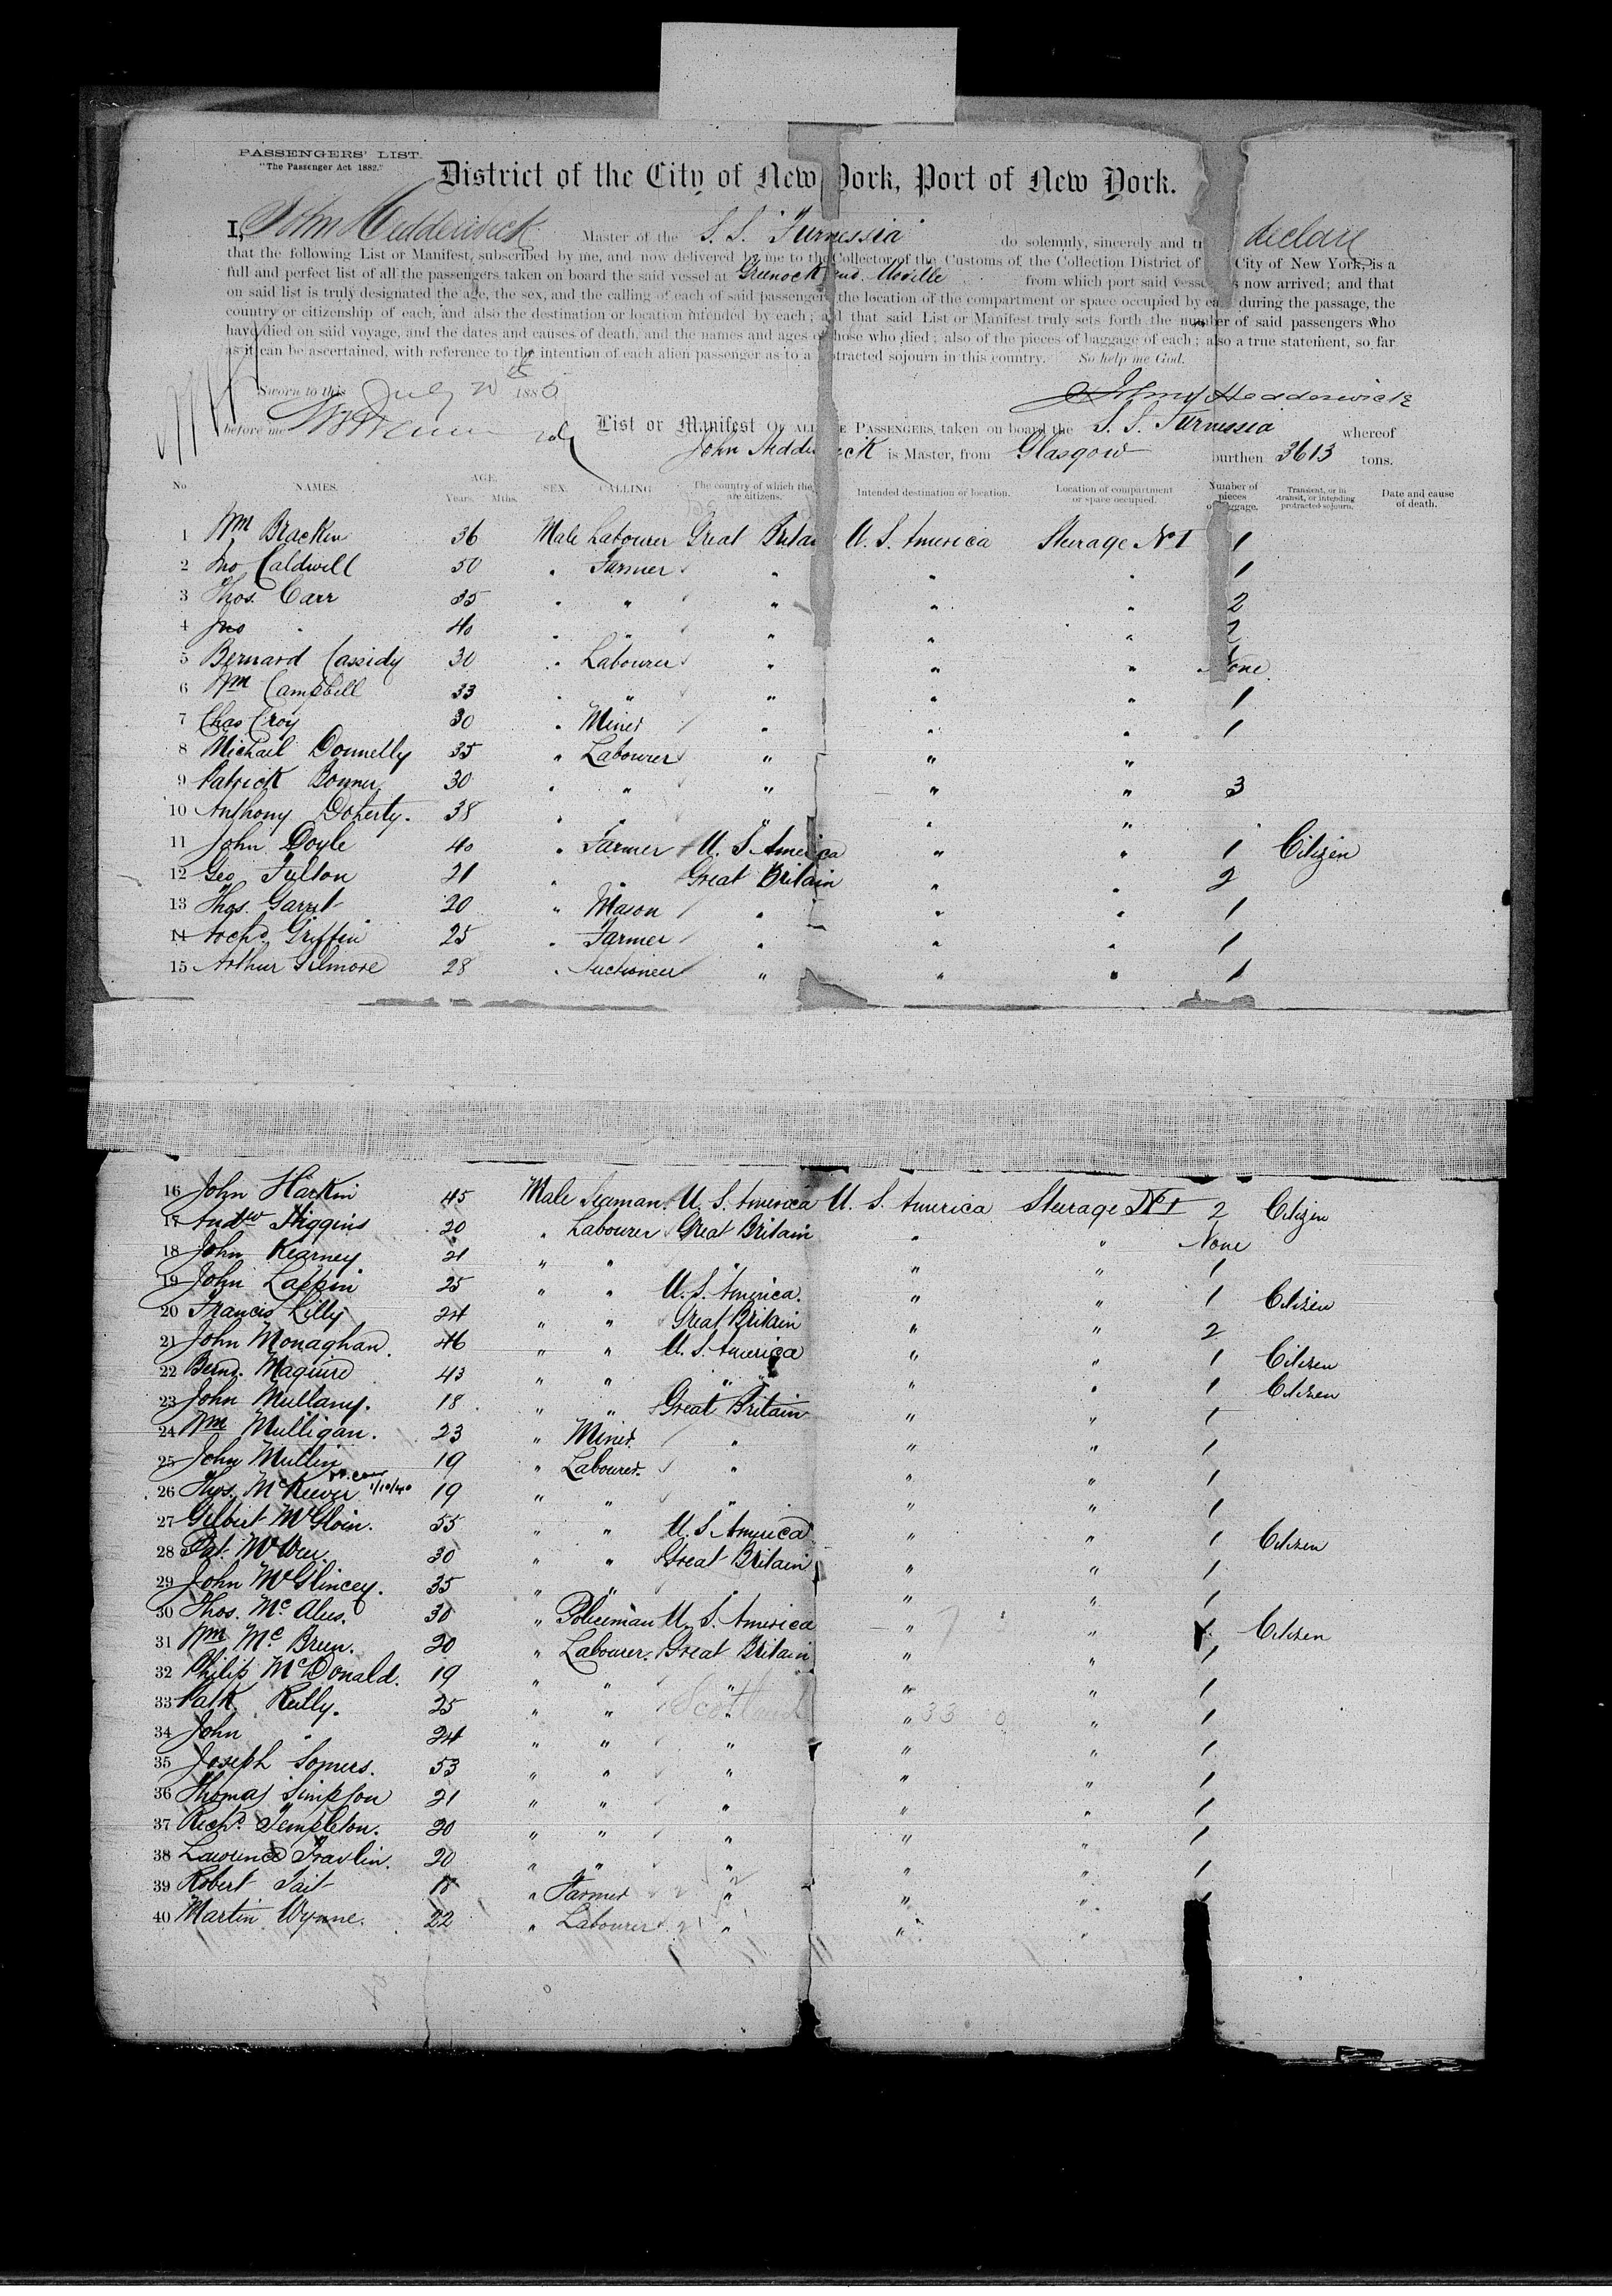 PASSENGERS' LIST.
"The Passenger Act 1882."
District of the City of New York, Port of New York.
I, John Hedderwick Master of the S. S. "Furnessia" do solemnly, sincerely and tr declare
that the following List or Manifest, subscribed by me, and now delivered by me to the Collector of the Customs of the Collection District of City of New York, is a
full and perfect list of all the passengers taken on board the said vessel at Greenock and Moville from which port said vess s now arrived; and that
on said list is truly designated the age, the sex, and the calling of each of said passengers the location of the compartment or space occupied by each during the passage, the
country or citizenship of each, and also the destination or location intended by each; and that said List or Manifest truly sets forth the number of said passengers who
have died on said voyage, and the dates and causes of death, and the names and ages of those who died; also of the pieces of baggage of each; also a true statement, so far
as it can be ascertained, with reference to the intention of each alien passenger as to a protracted sojourn in this country. So help me God.
Sworn to this July 20th 1885 John Hedderwick
before me
List or Manifest OF ALL THE PASSENGERS, taken on board the S. S. Furnessia whereof
John Hedderwick is Master, from Glasgow burthen 3613 tons.
No. NAMES. AGE. Years. Mths. SEX. CALLING. The country of which they are citizens. Intended destination or location. Location of compartment or space occupied. Number of pieces of baggage. Transient, or in transit, or intending protracted sojourn. Date and cause of death.
1 Wm Bracken 36 Male Labourer Great Britain U. S. America Steerage No 1 1
2 Jno Caldwell 50 " Farmer " " " 1
3 Thos. Carr 35 " " " " " 2
4 Jno " 40 " " " " " 2
5 Bernard Cassidy 30 " Labourer " " " None
6 Wm Campbell 33 " " " " " 1
7 Chas Croy 30 " Miner " " " 1
8 Michael Donnelly 35 " Labourer " " "
9 Patrick Bonner 30 " " " " " 3
10 Anthony Doherty. 38 " " " " "
11 John Doyle 40 " Farmer U. S America " " 1 Citizen
12 Geo Fulton 21 " " Great Britain " " 2
13 Thos. Garret 20 " Mason " " " 1
14 Archd. Griffin 25 " Farmer " " " 1
15 Arthur Gilmore 28 " Auctioneer " " " 1
16 John Harkin 45 Male Seaman. U. S. America U. S. America Steerage No 1 2 Citizen
17 Andw Higgins 20 " Labourer Great Britain " " None
18 John Kearney 21 " " " " " 1
19 John Lappin 25 " " U. S. America. " " 1 Citizen
20 Francis Lilly 24 " " Great Britain " " 2
21 John Monaghan. 46 " " U. S. America " " 1 Citizen
22 Bernd. Maguire 43 " " " " " " 1 Citizen
23 John Mullany. 18 " " Great Britain " " 1
24 Wm Mulligan. 23 " Miner " " " 1
25 John Mullin 19 " Labourer. " " " 1
26 Thos. McKeever 1/10/40 19 " " " " " 1
27 Gilbert McGloin. 55 " " U. S America " " 1 Citizen
28 Pat. 30 " " Great Britain " " 1
29 John McGlincey. 35 " " " " " 1
30 Thos. 30 " Policeman U. S. America " " Citizen
31 Wm Mc Breen. 20 " Labourer. Great Britain " " 1
32 Philip McDonald. 19 " " " " " 1
33 Patk. Reilly. 25 " " Scotland " " 33 " 1
34 John " 24 " " " " " 1
35 Joseph Somers. 53 " " " " " 1
36 Thomas Simpson 21 " " " " " 1
37 Richd. Templeton. 20 " " " " " 1
38 Lawrence 20 " " " " " 1
39 Robert Tait 18 " Farmer " " " 1
40 Martin Wynne. 22 " Labourer " " "